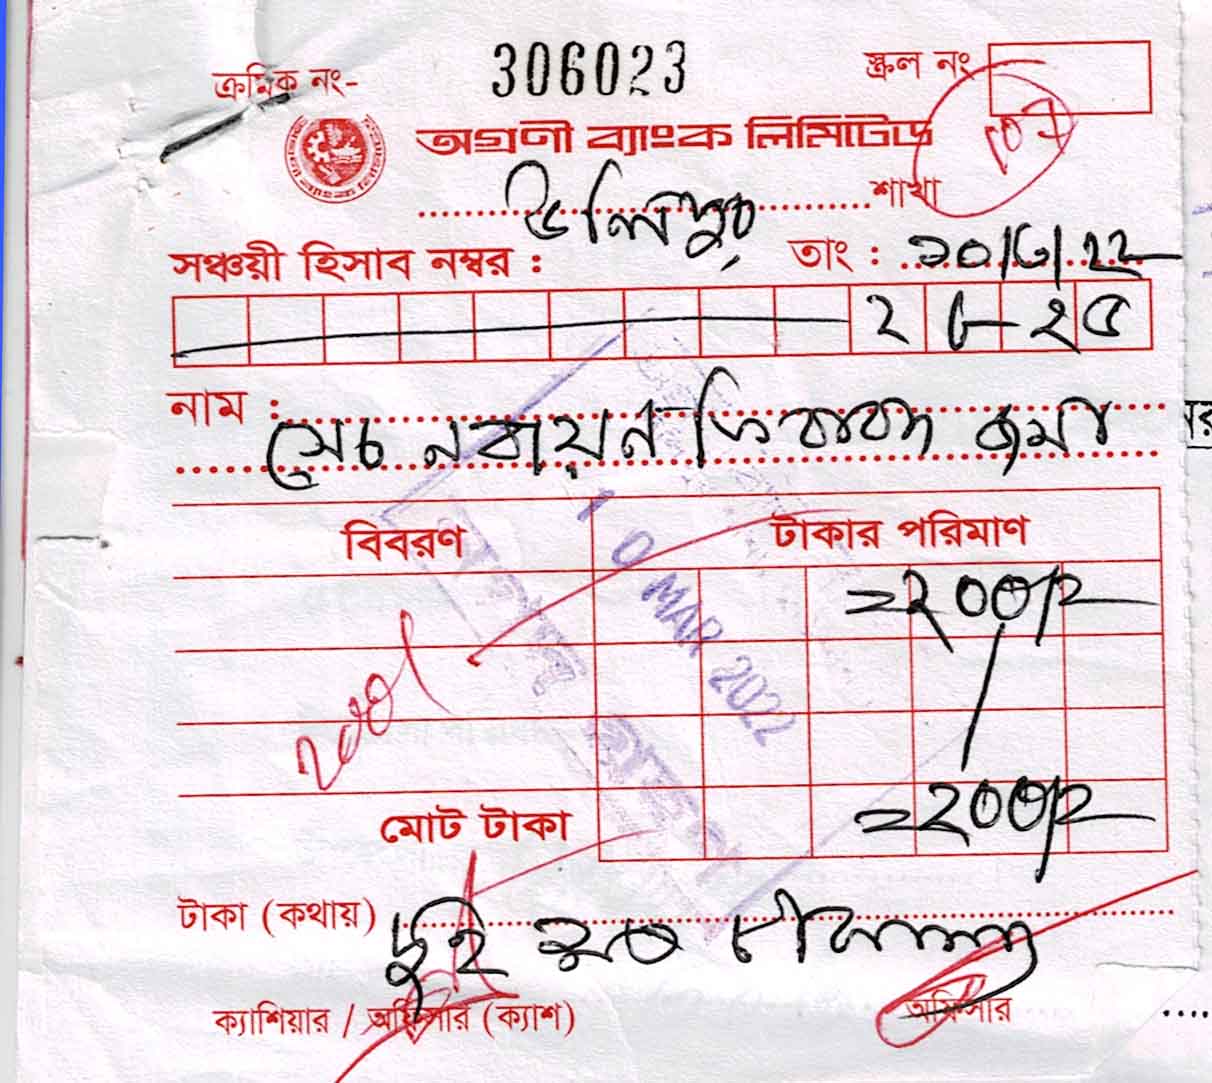 ক্রমিক নং- 306023 স্ক্রল নং
অগ্রণী ব্যাংক লিমিটেড
উলিপুর শাখা
সঞ্চয়ী হিসাব নম্বর : তাং : ১০/৩/২২
নাম : সেচ নবায়ন ফি বাবদ জমা
বিবরণ টাকার পরিমাণ
10 MAR 2022
=২০০/=
২০০/
মোট টাকা =২০০/=
টাকা (কথায়) দুই শত টাকা
ক্যাশিয়ার / অফিসার (ক্যাশ) অফিসার